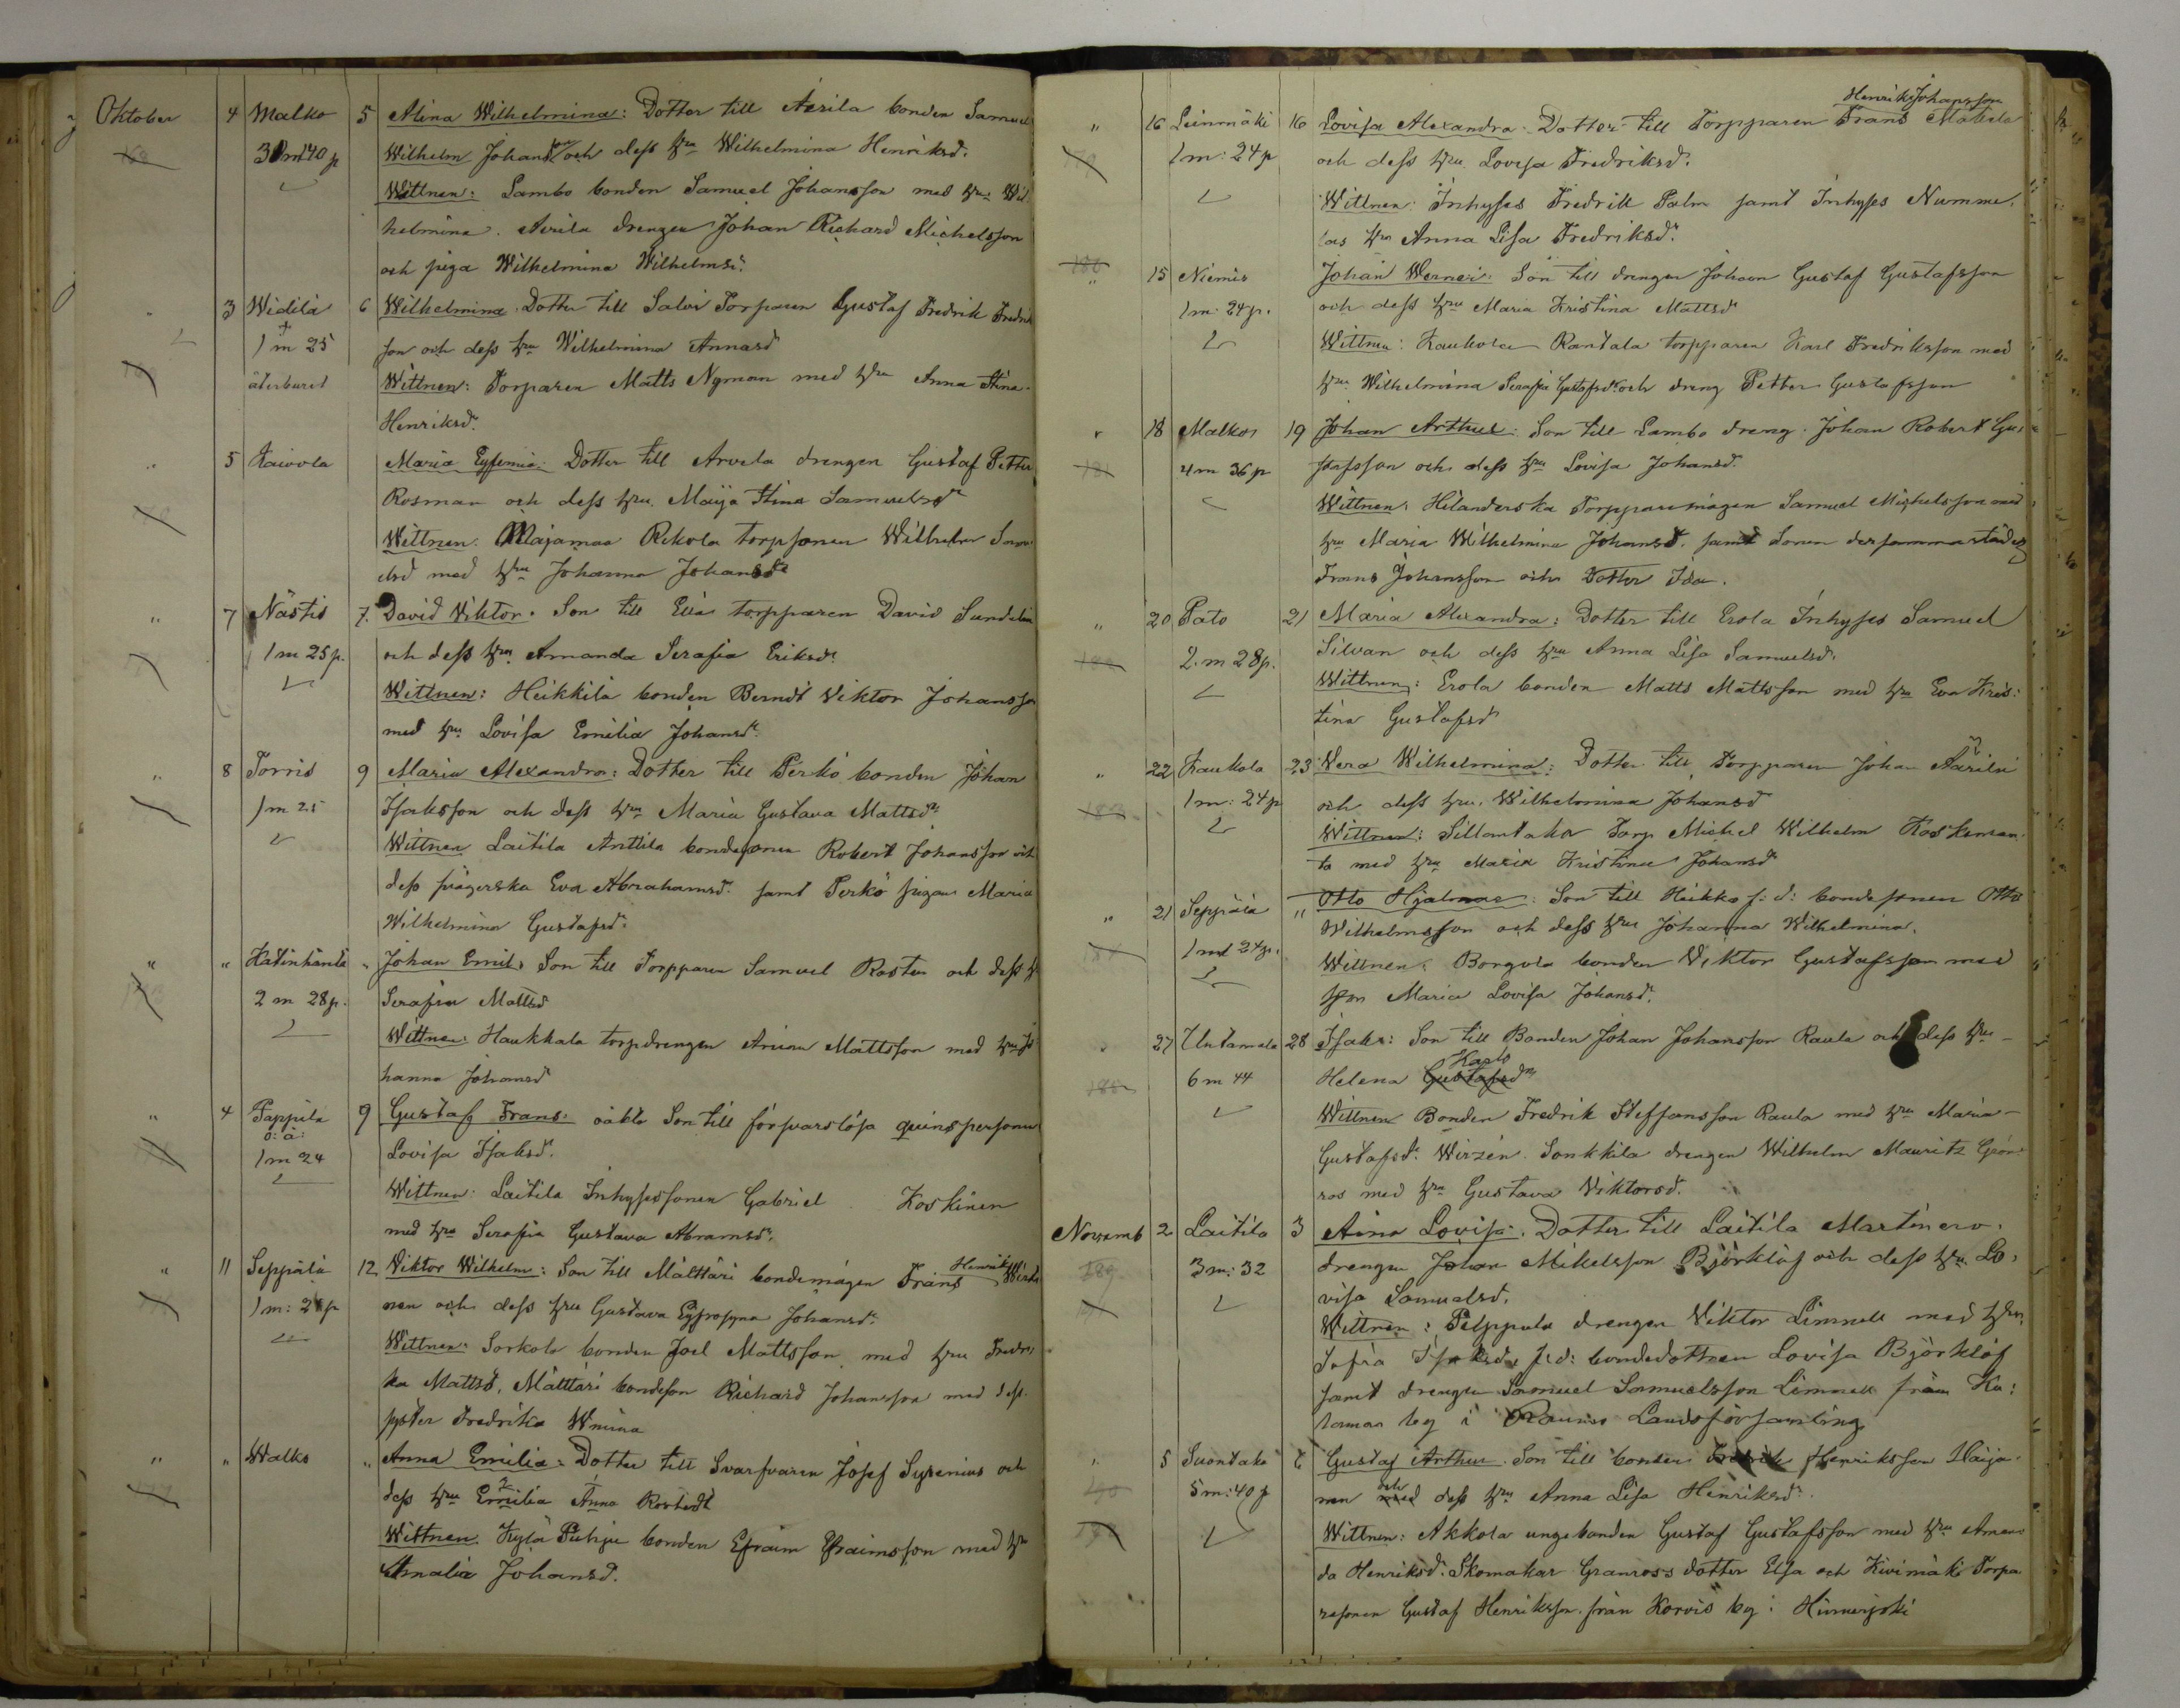 Oktober 4 Malko 5 Alina Wilhelmina: Dotter till Äerila bonden Samuel
3 m 40 p Wilhelm Johansson och dess hru Wilhelmina Henriksd.
Wittnen: Lambo bonden Samuel Johansson med hru Wil-
helmina. Aerila drengen Johan Richard Michelsson
och piga Wilhelmina Wilhelmsd.
" 3 Widilä 6 Wilhelmina. Dotter till Salvi Torparen Gustaf Fredrik Fredrik
1 m 25 son och dess hru Wilhelmina Annasd
återburet Wittnen: Torparen Matts Nyman med hru Anna Stina
Henriksd.
" 5 Raivola Maria Eyfemia: Dotter till Arvela drengen Gustaf Petter
Rosman och dess hru. Maija Stina Samuelsdr
Wittnen. Majamaa Rekola torpsonen Wilhelm Samu
elsd med hru Johanna Johansdr
" 7 Nästis 7. David Viktor. Son till Eliä torpparen David Sundelin
1 m 25 p. och dess hru Amanda Serafia Eriksdr
Wittnen: Heikkilä bonden Berndt Viktor Johansso
med hru Lovisa Emilia Johansdr
" 8 Torris 9 Maria Alexandra: Dotter till Perkö bonden Johan
1 m 25 Isaksson och dess hru Maria Gustava Mattsdr
Wittnen Laitila Anttila bondesonen Robert Johansson och
dess sviägerska Eva Abrahamsd. samt Perkö pigan Maria
Wilhelmina Gustafsdr
" " Hatinhäntä " Johan Emil: Son till Torpparen Samuel Rosten och dess h
2 m 28 p. Serafia Mattsd
Wittnen: Haukkala torpdrengen Mattsson med hru Jo
hanna Johansdr
" 4 Pappila 9 Gustaf Frans: oäkta Son till försvarslösa quinspersonen
o: ä:
1 m 24 Lovisa Isaksd.
Wittnen: Laitila Inhysessonen Gabriel Koskinen
med hru Serafia Gustava Abramsdr.
Henrik
" 11 Seppälä 12 Viktor Wilhelm: Son till Mälttäri bondemågen Frans Wirta
1 m: 24 p nen och dess hru Gustava Eyfrosyna Johansdr
Wittnen: Sorkola bonden Joel Mattsson med hru Fredri
ka Mattsd. Mälttäri bondeson Richard Johansson med dess
syster Fredrika Wmina
" " Walko " Anna Emilia: Dotter till Svarfvaren Josef Syrenius och
2 1
dess hru Emilia Anna Rostedt
Wittnen. Kylä Puhju bonden Efraim Efraimsson med hru
Amalia Johansd.
Henrik Johansson
" 16 Leinmäki 16 Lovisa Alexandra: Dotter till Torpparen Frans Mäkelä
1 m: 24 p och dess hru. Lovisa Fredriksdr.
Wittnen: Inhyses Fredrik Palm samt Inhyses Numme-
las hru Anna Lisa Fredriksdr.
180
" 15 Niemis Johan Werner: Son till drengen Johan Gustaf Gustafsson
1 m: 24 p. och dess hru Maria Kristina Mattsdr
Wittnen: Kaukola Rantala torpparen Karl Fredriksson med
hru Wilhelmina Serafia Gustafsdr. och dreng Petter Gustafsson
" 18 Malkos 19 Johan Arthur: Son till Lambo dreng. Johan Robert Gu-
181 4 m 36 p stafsson och dess hru Lovisa Johansd.
Wittnen: Hilanderska Torpparemågen Samuel Michelsson med
hru Maria Wilhelmina Johansd. samt Sonen dersammastädes
Frans Johansson och Dotter Ida.
" 20 Pato 21 Maria Alexandra: Dotter till Erola Inhyses Samuel
2. m 28 p. Silvan och dess hru Anna Lisa Samuelsd.
Wittnen: Erola bonden Matts Mattsson med hru Eva Kris-
tina Gustafsdr
" 22 Kaukola 23 Wera Wilhelmina: Dotter till Torpparen Johan Äärilä
1 m: 24 p och dess hru. Wilhelmina Johansd
Wittnen: Sillantaka Torp Michel Wilhelm
ta med hru Maria Kristina Johansdr
" 21 Seppälä " Otto Hjalmar: Son till Heikko f: d: bondesonen Otto
1 m 24 p. Wilhelmsson och dess hru Johanna Wilhelmina.
Wittnen: Borgola bonden Viktor Gustafsson med
hru Maria Lovisa Johansd.
" 27 Untamala 28 Isak: Son till Bonden Johan Johansson Raula och dess hru
Karls
6 m 44 Helena Gustafsdr
Wittnen Bonden Fredrik Steffansson Raula med hru Maria
Gustafsdr. Wirzén. Sonkkila drengen Wilhelm Mauritz Grön-
ros med hru Gustava Viktorsd.
Novemb 2 Laitila 3 Aina Lovisa. Dotter till Laitila Martinero-
189 3 m: 32 drengen Johan Mikelsson Björklöf och dess hru. Lo-
visa Samuelsd.
Wittnen: Pelppala drengen Viktor Limnell med hru
Sofia Isaksd. f: d: bondedottren Lovisa Björklöf
samt drengen Samuel Samuelsson Limnell från Ko-
laman by i Raumo Landsförsamling
" 5 Suontaka 6 Gustaf Arthur. Son till bonden Fredrik Henriksson Haija-
och
190 5 m: 40 p nen med dess hru Anna Lisa Henriksdr.
Wittnen: Akkola ungebonden Gustaf Gustafsson med hru Aman-
da Henriksd. Skomakar Granross dotter Elsa och Kivimäki Torpa-
resonen Gustaf Henriksson från Korvis by i Hinnerjoki